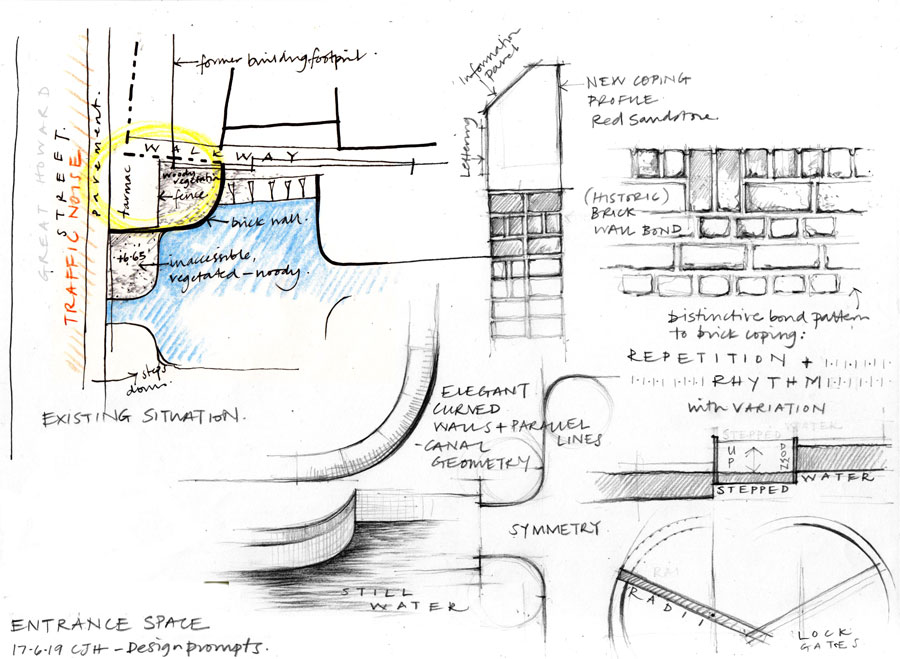 GREAT HOWARD
STREET.
TRAFFIC NOISE
pavement.
former building footprint.
WALKWAY
tarmac
woody
vegetation
fence
brick wall.
+6.65
inaccessible,
vegetated - woody.
steps
down.
EXISTING SITUATION.
Information
panel
Lettering
NEW COPING
PROFILE
Red Sandstone.
(HISTORIC)
BRICK
WALL BOND
Distinctive bond pattern
to brick coping:
REPETITION +
RHYTHM
with VARIATION
ELEGANT
CURVED
WALLS + PARALLEL
LINES
- CANAL
GEOMETRY
STEPPED WATER
UP
DOWN
WATER
STEPPED
SYMMETRY
STILL
WATER
RADII
LOCK
GATES
ENTRANCE SPACE
17-6-19 CJH - Design prompts.